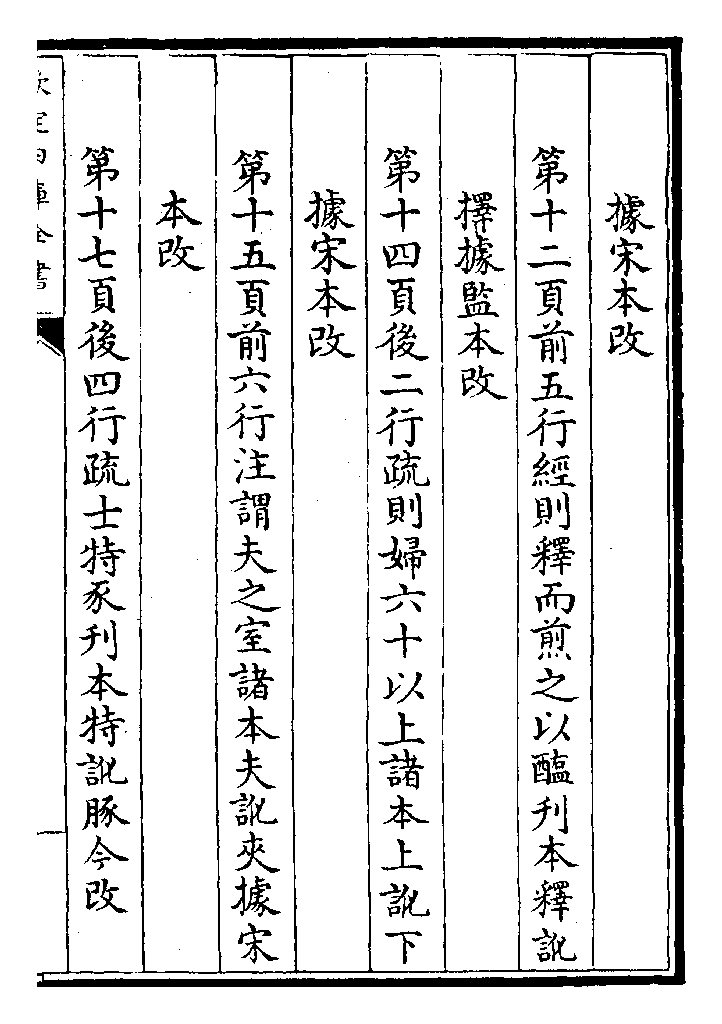 據宋本改
第十二頁前五行經則釋而煎之以醢刋本釋訛
擇據監本改
第十四頁後二行疏則婦六十以上諸本上訛下
據宋本改
第十五頁前六行注謂夫之室諸本夫訛夾據宋
本改
第十七頁後四行疏士特豕刋本特訛豚今改
欽定四庫全書